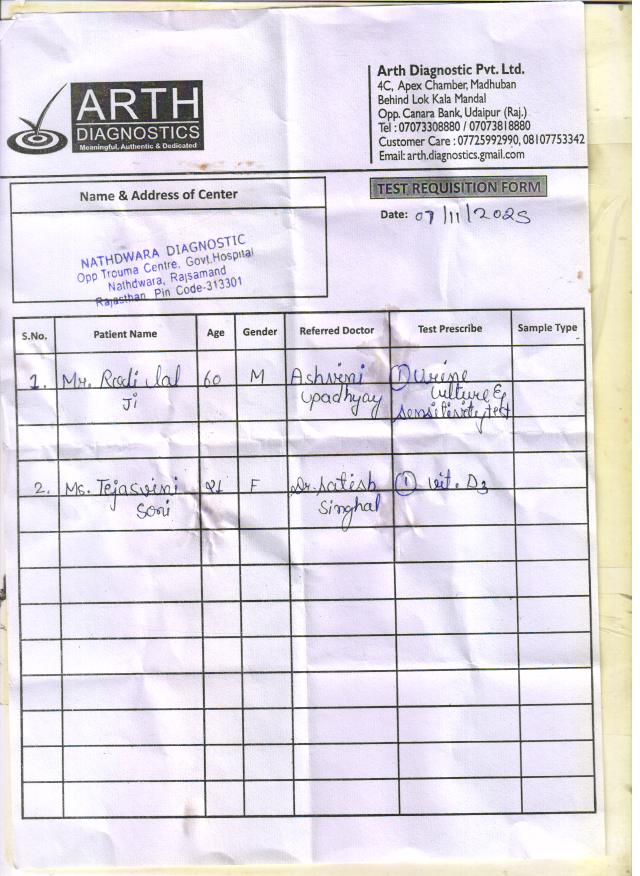 ARTH
DIAGNOSTICS
Meaningful, Authentic & Dedicated
Arth Diagnostic Pvt. Ltd.
4C, Apex Chamber, Madhuban
Behind Lok Kala Mandal
Opp. Canara Bank, Udaipur (Raj.)
Tel : 07073308880 / 07073818880
Customer Care : 07725992990, 08107753342
Email: arth.diagnostics.gmail.com
Name & Address of Center
NATHDWARA DIAGNOSTIC
Opp Trouma Centre, Govt.Hospital
Nathdwara, Rajsamand
Rajasthan Pin Code-313301
TEST REQUISITION FORM
Date: 07/11/2025
S.No. Patient Name Age Gender Referred Doctor Test Prescribe Sample Type
1. Mr. Rodi lal 60 M Ashvini ① Urine
Ji Upadhyay Culture &
sensitivity test
2. Ms. Tejasvini 21 F Dr. Satish ① Vit. D3
Soni Singhal